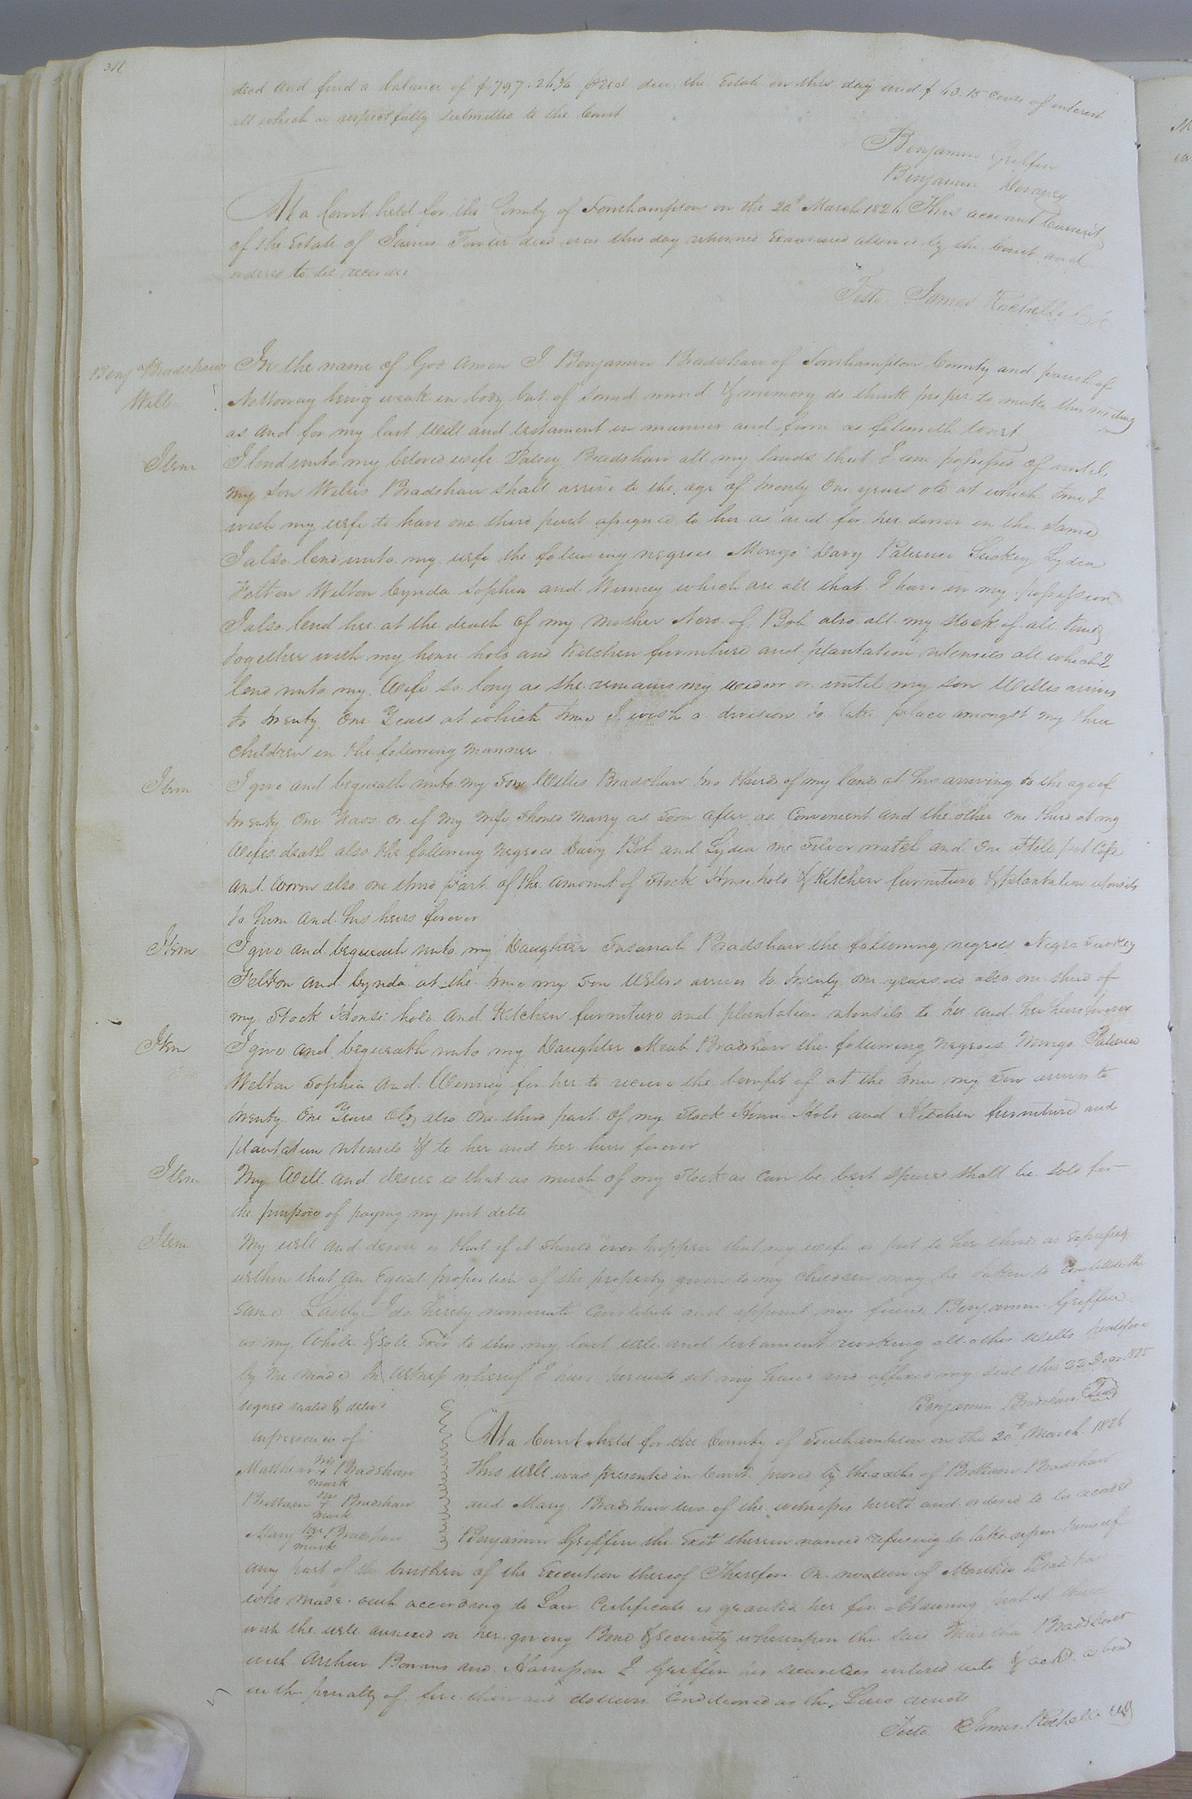 311
dead and find a balance of $797.26¾ due the Estate on this day and $43.15 cents of interest
all which is respectfully submitted to the Court
Benjamin Griffin
Benjamin
At a Court held for the County of Southampton on the 20th March 1826 This account Current
of the Estate of James Fowler decd was this day returned Examined by the Court and
ordered to be recorded
Teste James Rochelle
Benj Bradshaws
Will
In the name of God Amen I Benjamin Bradshaw of Southampton County and parish of
Nottoway being weak in body but of sound mind & memory do think proper to make this writing
as and for my last Will and testament in manner and form as followeth towit
Item
I lend unto my beloved wife Patsey Bradshaw all my lands that I am possessed of until
my Son Willis Bradshaw shall arrive to the age of twenty One years old at which time I
wish my wife to have one third part assigned to her as and for her dower in the same
I also lend unto my wife the following negroes Mingo Davy Patience Suckey Lydia
Felton Welton Cynda Sophia and Winney which are all that I have in my possession
I also lend her at the death of my Mother Negro Bob also all my Stock of all kind
together with my house hold and Kitchen furniture and plantation utensils all which I
lend unto my Wife so long as she remains my widow or until my son Willis arrives
to twenty One Years at which time I wish a division to take place amongst my three
children in the following manner
Item
I give and bequeath unto my Son Willis Bradshaw two thirds of my land at his arriving to the age of
twenty One Years or if my wife should marry as soon after as Convenient and the other one third at my
Wifes death also the following negroes Davy Bob and Lydia one Silver watch and One Still pot Cap
and worm also one third part of the amount of Stock House hold & Kitchen furniture & plantation utensils
to him and his heirs forever
Item
I give and bequeath unto my Daughter Susanah Bradshaw the following negroes Negro Suckey
Felton and Cynda at the time my Son Willis arrives to twenty one years old also one third of
my Stock House hold and Kitchen furniture and plantation utensils to her and her heirs forever
Item
I give and bequeath unto my Daughter Bradshaw the following negroes Mingo Patience
Welton Sophia and Winney for her to receive the benefit of at the time my Son arrives to
twenty One Years Old also One third part of my Stock House Hold and Kitchen furniture and
plantation utensils & to her and her heirs forever
Item
My Will and desire is that as much of my Stock as can be best spared shall be sold for
the purpose of paying my just debts
Item
My will and desire is that if it should ever happen that my wife is put to her thirds as expressed
within that an Equal proportion of the property given to my children may be taken to constitute the
same Lastly I do hereby nominate Constitute and appoint my friend Benjamin Griffin
as my Whole & Sole Exor to this my last will and testament revoking all other wills heretofore
by me made In witness whereof I have hereunto set my hand and affixed my seal this 22 Decr 1825
Benjamin Bradshaw Seal
signed sealed & delivd
in presence of
Matthew his + mark Bradshaw
his + mark Bradshaw
Mary her + mark Bradshaw
At a Court held for the County of Southampton on the 20th March 1826
This Will was presented in Court proved by the oaths of Bradshaw
and Mary Bradshaw two of the witnesses hereto and ordered to be recorded
Benjamin Griffin the Exor therein named refusing to take upon himself
any part of the burthen of the Execution thereof Therefore On motion of Bradshaw
who made oath according to Law Certificate is granted her for obtaining
with the will annexed on her giving Bond & Security whereupon the said Bradshaw
with Arthur and Harrison Griffin her securities entered into & ackd a bond
in the penalty of five thousand dollars Conditioned as the Law directs
Teste James Rochelle